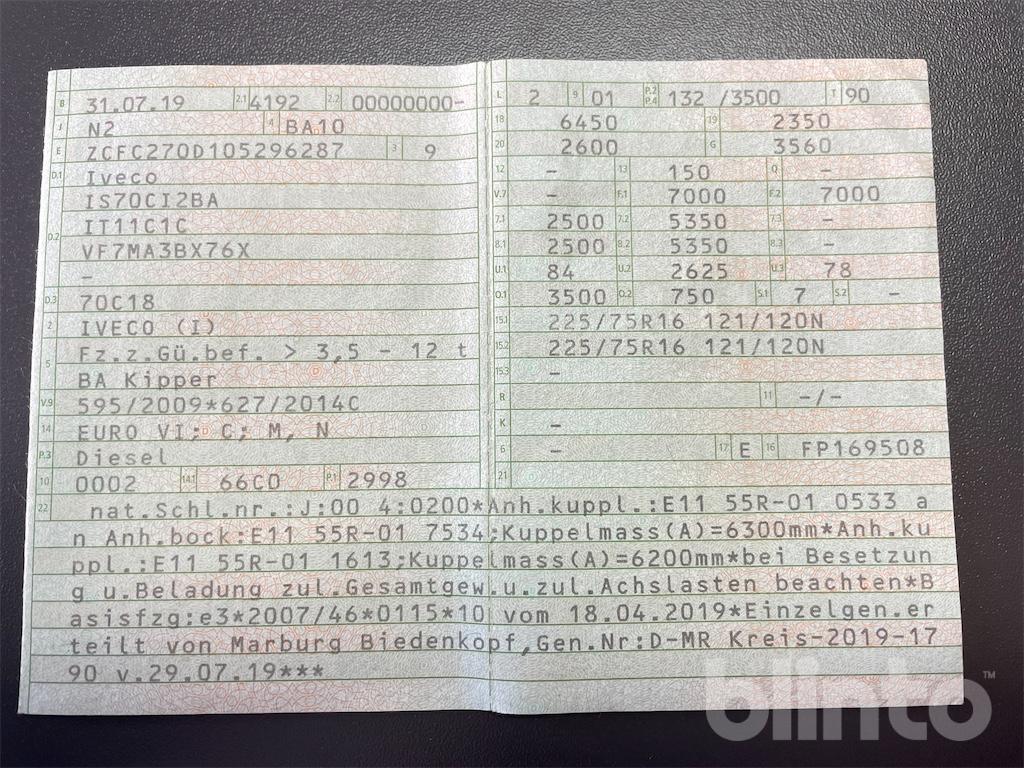 B 31.07.19 2.1 4192 2.2 00000000-
J N2 4 BA10
E ZCFC270D105296287 3 9
D.1 Iveco
D.2 IS70CI2BA
IT11C1C
VF7MA3BX76X
-
D.3 70C18
2 IVECO (I)
5 Fz.z.Gü.bef. > 3,5 - 12 t
BA Kipper
V.9 595/2009*627/2014C
14 EURO VI; C; M, N
P.3 Diesel
10 0002 14.1 66C0 P.1 2998
L 2 9 01 P.2 P.4 132 /3500 T 90
18 6450 19 2350
20 2600 G 3560
12 - 13 150 Q -
V.7 - F.1 7000 F.2 7000
7.1 2500 7.2 5350 7.3 -
8.1 2500 8.2 5350 8.3 -
U.1 84 U.2 2625 U.3 78
O.1 3500 O.2 750 S.1 7 S.2 -
15.1 225/75R16 121/120N
15.2 225/75R16 121/120N
15.3 -
R 11 -/-
K -
6 - 17 E 16 FP169508
21
22 nat.Schl.nr.:J:00 4:0200*Anh.kuppl.:E11 55R-01 0533 a
n Anh.bock:E11 55R-01 7534;Kuppelmass(A)=6300mm*Anh.ku
ppl.:E11 55R-01 1613;Kuppelmass(A)=6200mm*bei Besetzun
g u.Beladung zul.Gesamtgew.u.zul.Achslasten beachten*B
asisfzg:e3*2007/46*0115*10 vom 18.04.2019*Einzelgen.er
teilt von Marburg Biedenkopf,Gen.Nr:D-MR Kreis-2019-17
90 v.29.07.19***
blinto™